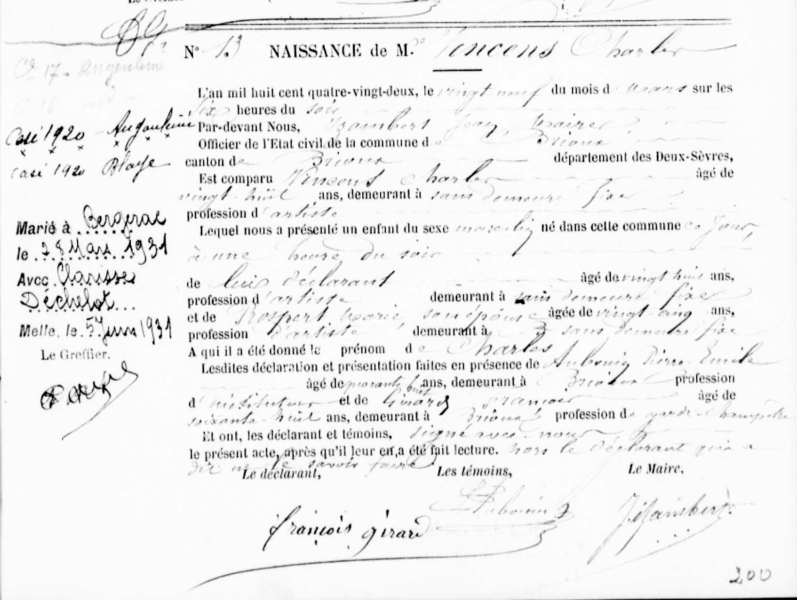 N° 13 NAISSANCE de M. Vincens Charles
L'an mil huit cent quatre-vingt-deux, le vingt neuf du mois de mars sur les
six heures du soir
Par-devant Nous, Jambert Jean, Maire
Officier de l'Etat civil de la commune de Brioux
canton de Brioux département des Deux-Sèvres,
Est comparu Vincens Charles âgé de
vingt huit ans, demeurant à sans demeure fixe
profession d'artiste
Lequel nous a présenté un enfant du sexe masculin né dans cette commune ce jour,
à une heure du soir
de lui déclarant âgé de vingt huit ans,
profession d'artiste demeurant à sans demeure fixe
et de Marie, son épouse âgée de vingt cinq ans,
profession d'artiste, demeurant à sans demeure fixe
A qui il a été donné le prénom de Charles
Lesdites déclaration et présentation faites en présence de Pierre Emile
âgé de ans, demeurant à Brioux profession
d'instituteur et de Girard François âgé de
soixante huit ans, demeurant à Brioux profession de garde champêtre
Et ont, les déclarant et témoins, signé avec nous
le présent acte, après qu'il leur en a été fait lecture. hors le déclarant qui a
dit ne le savoir faire
Le déclarant, Les témoins, Le Maire,
françois girard
Casé 1920 - Angoulême
Casé 1920 Blaye
Marié à Bergerac
le 28 Mars 1931
Avec Clarisse
Déchelot
Melle, le 5 Juin 1931
Le Greffier.
200